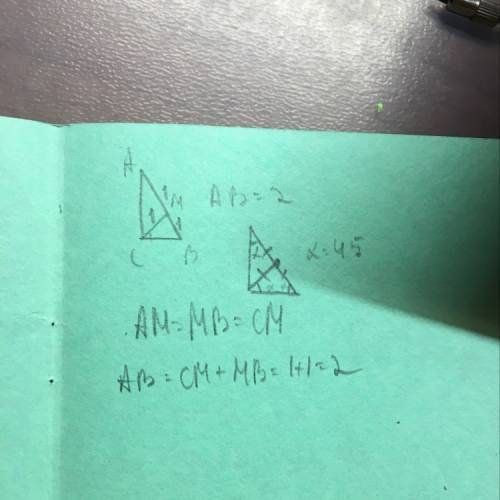 A
1 M AB = 2
1 1
C B
α α = 45
AM = MB = CM
AB = CM + MB = 1+1 = 2